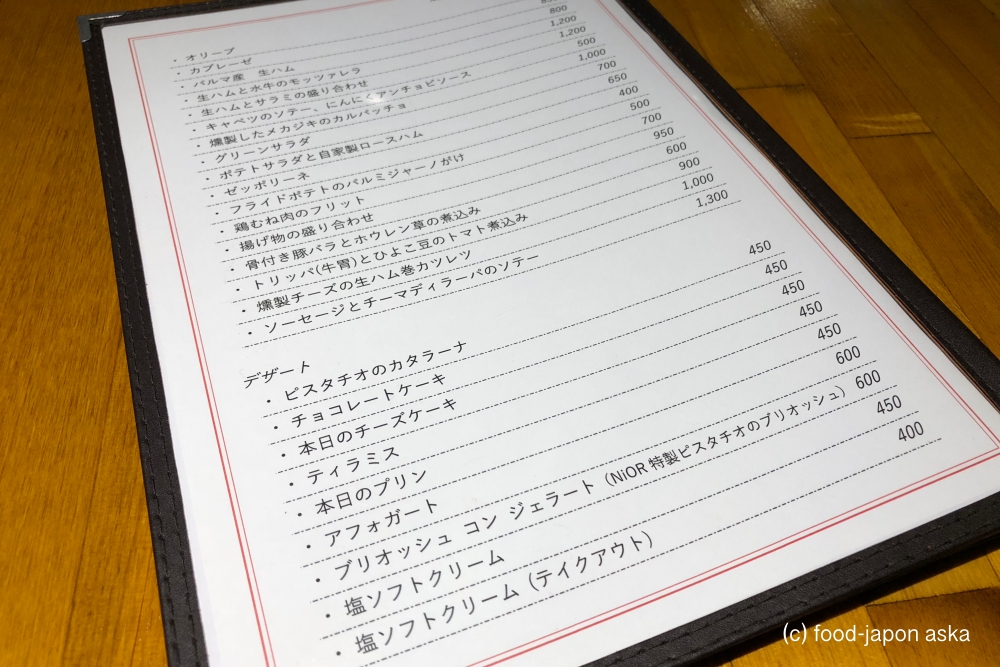 ・オリーブ
・カプレーゼ
・パルマ産 生ハム 800
・生ハムと水牛のモッツァレラ 1,200
・生ハムとサラミの盛り合わせ 1,200
・キャベツのソテー、にんにくアンチョビソース 500
・燻製したメカジキのカルパッチョ 1,000
・グリーンサラダ 700
・ポテトサラダと自家製ロースハム 650
・ゼッポリーネ 400
・フライドポテトのパルミジャーノがけ 500
・鶏むね肉のフリット 700
・揚げ物の盛り合わせ 950
・骨付き豚バラとホウレン草の煮込み 600
・トリッパ(牛胃)とひよこ豆のトマト煮込み 900
・燻製チーズの生ハム巻カツレツ 1,000
・ソーセージとチーマディラーパのソテー 1,300
デザート
・ピスタチオのカタラーナ 450
・チョコレートケーキ 450
・本日のチーズケーキ 450
・ティラミス 450
・本日のプリン 450
・アフォガート 600
・ブリオッシュ コン ジェラート（NiOR 特製ピスタチオのブリオッシュ） 600
・塩ソフトクリーム 450
・塩ソフトクリーム（テイクアウト） 400
(c) food-japon aska